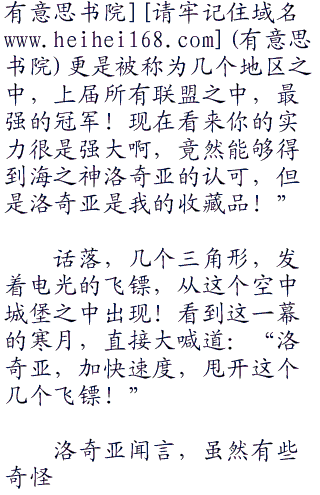 有意思书院][请牢记住域名
www.heihei168.com](有意思
书院)更是被称为几个地区之
中，上届所有联盟之中，最
强的冠军！现在看来你的实
力很是强大啊，竟然能够得
到海之神洛奇亚的认可，但
是洛奇亚是我的收藏品！”
话落，几个三角形，发
着电光的飞镖，从这个空中
城堡之中出现！看到这一幕
的寒月，直接大喊道：“洛
奇亚，加快速度，甩开这个
几个飞镖！”
洛奇亚闻言，虽然有些
奇怪